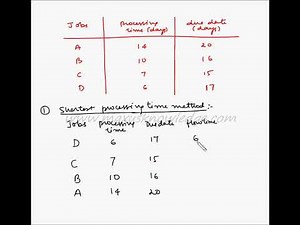 Jobs processing time (days) due date (days)
A 14 20
B 10 16
C 7 15
D 6 17
① Shortest processing time method:-
Jobs processing time Duedate flowtime
D 6 17 6
C 7 15
B 10 16
A 14 20